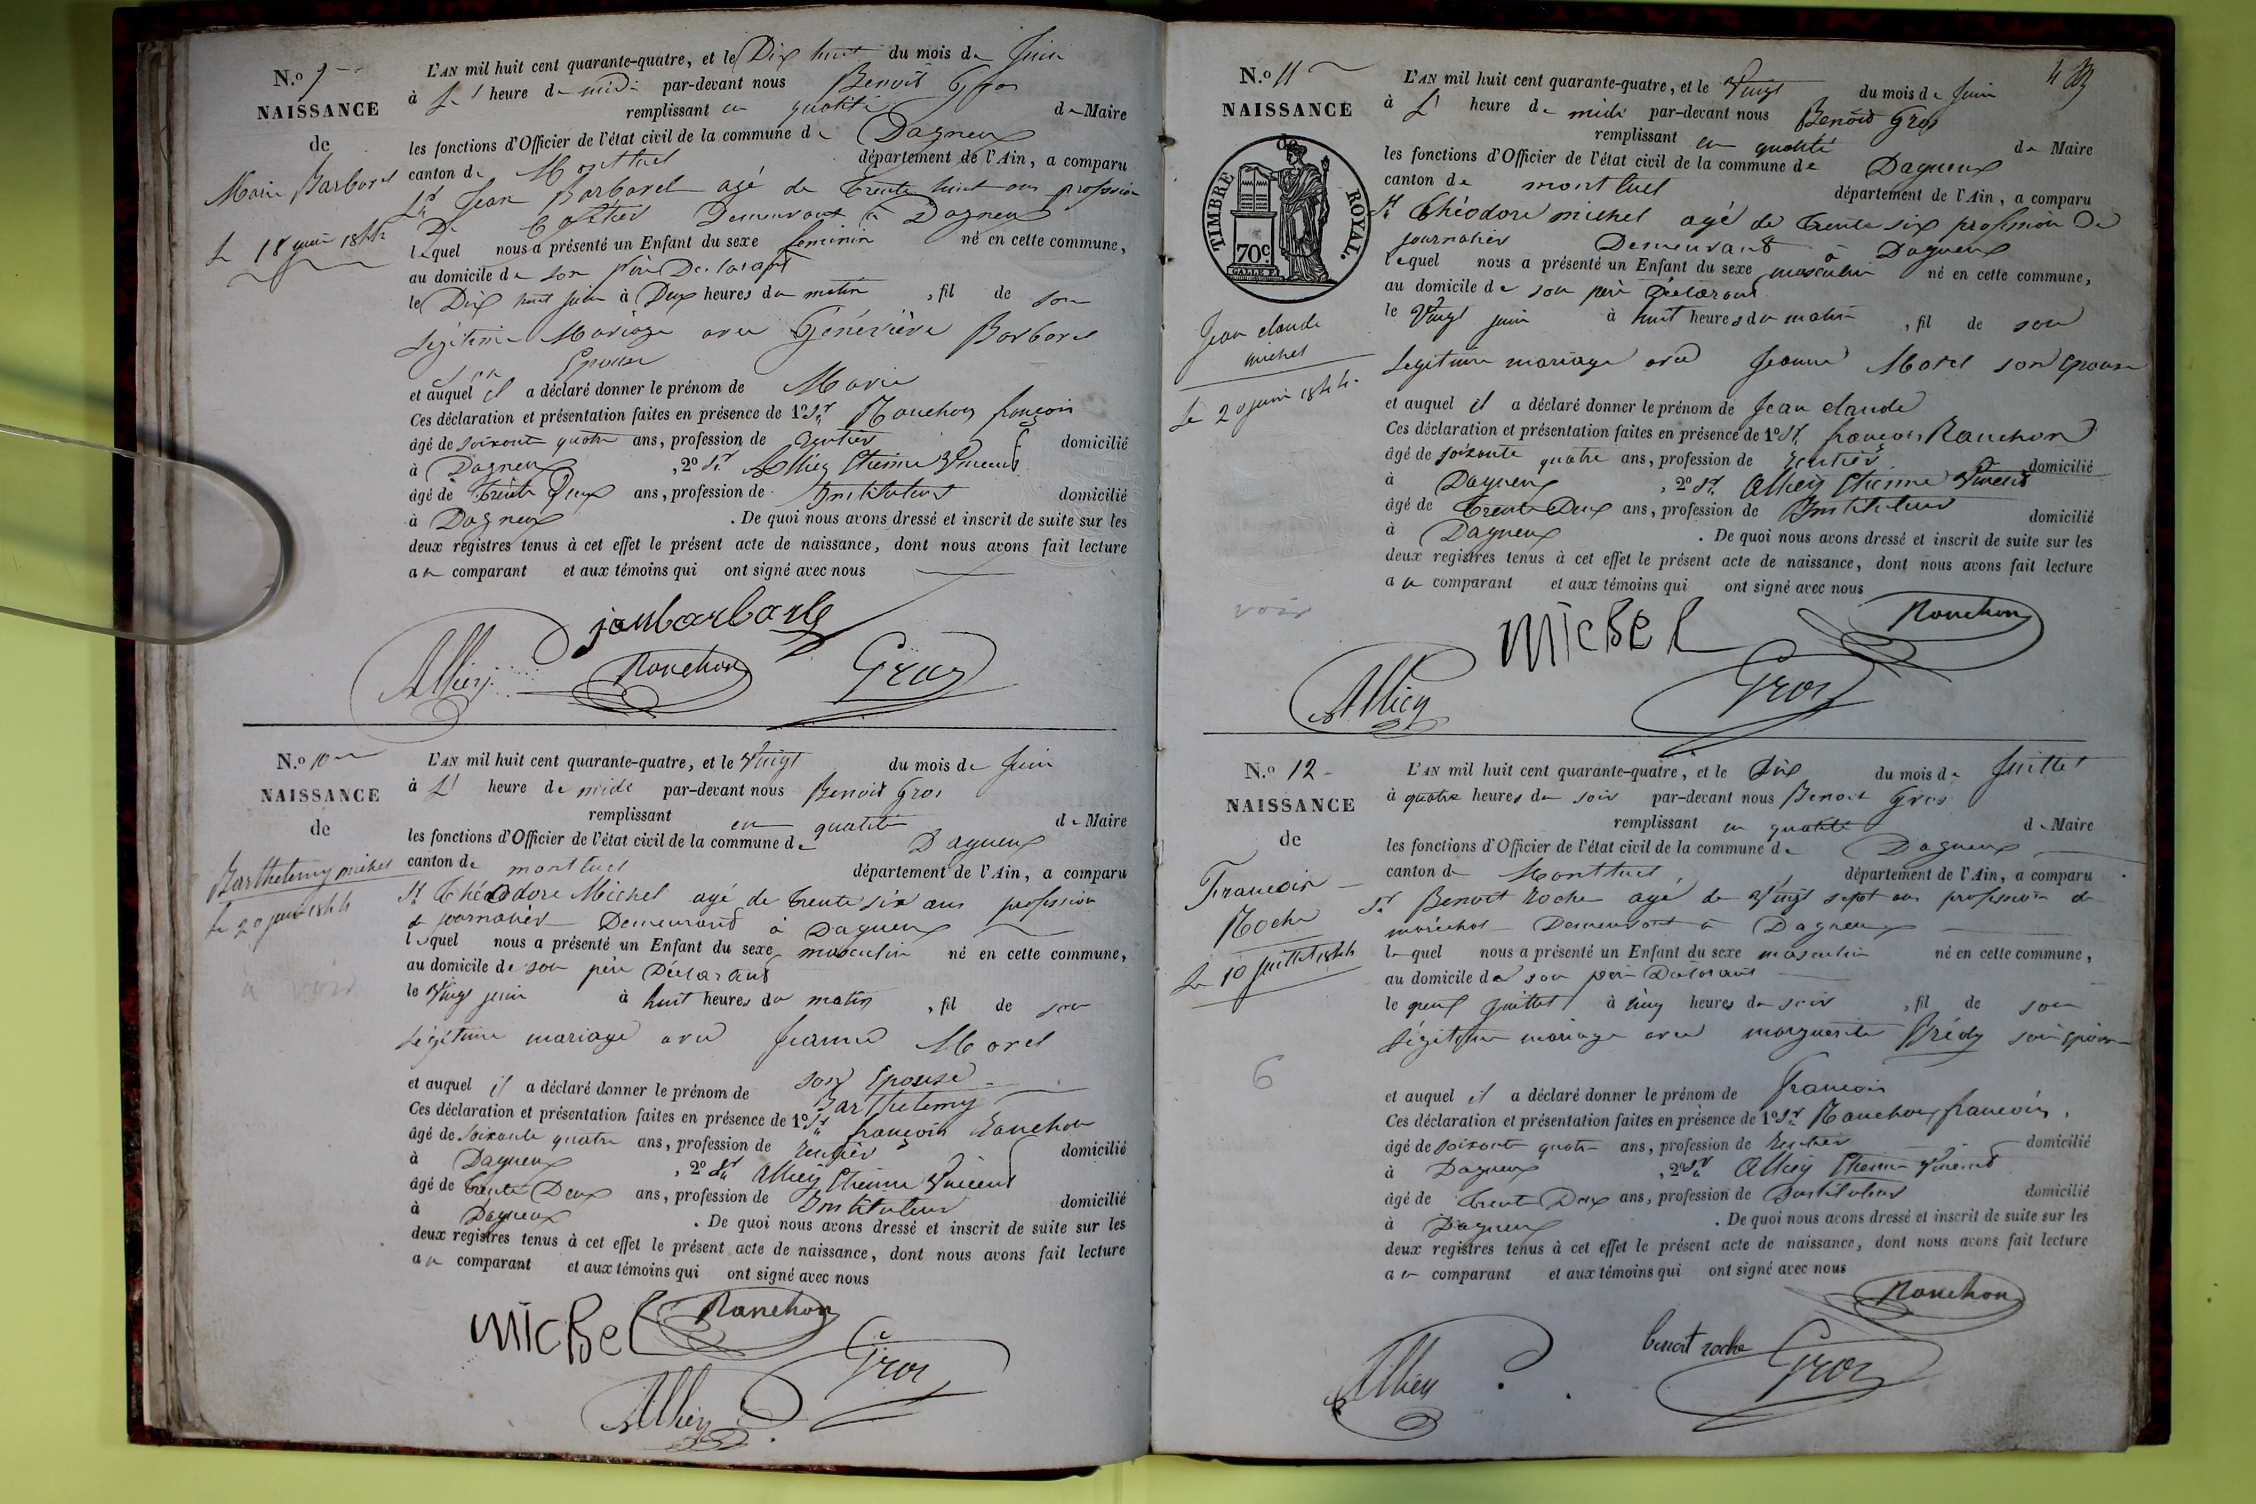 N.º 9
NAISSANCE
de
Marie Barbarel
Le 18 juin 1844
L'AN mil huit cent quarante-quatre, et le Dix huit du mois de Juin
à L' heure de midi par-devant nous Benoît Gros
remplissant en qualité de Maire
les fonctions d'Officier de l'état civil de la commune de Dagneux
canton de Montluel département de l'Ain, a comparu
Sr Jean Barbarel agé de trente huit ans profession
De Demeurant à Dagneux
lequel nous a présenté un Enfant du sexe feminin né en cette commune,
au domicile de son père Déclarant
le Dix huit juin à Deux heures du matin , fil de son
légitime Mariage avec Genéviève Barbarel
son Epouse
et auquel il a déclaré donner le prénom de Marie
Ces déclaration et présentation faites en présence de 1º Sr Ranchon françois
âgé de soixante quatre ans, profession de rentier domicilié
à Dagneux , 2º Sr Alliey Etienne Vincent
âgé de trente Deux ans, profession de Instituteur domicilié
à Dagneux . De quoi nous avons dressé et inscrit de suite sur les
deux registres tenus à cet effet le présent acte de naissance, dont nous avons fait lecture
au comparant et aux témoins qui ont signé avec nous
Alliey Ranchon Gros
N.º 10
NAISSANCE
de
Barthelemy michel
Le 20 juin 1844
a voir
L'AN mil huit cent quarante-quatre, et le Vingt du mois de Juin
à L' heure de midi par-devant nous Benoit Gros
remplissant en qualité de Maire
les fonctions d'Officier de l'état civil de la commune de Dagneux
canton de montluel département de l'Ain, a comparu
Sr Théodore Michel agé de trente six ans profession
de journalier Demeurant à Dagneux
lequel nous a présenté un Enfant du sexe masculin né en cette commune,
au domicile de son père Déclarant
le Vingt juin à huit heures du matin , fil de son
Légitime mariage avec Jeanne Morel
son Epouse
et auquel il a déclaré donner le prénom de Barthelemy
Ces déclaration et présentation faites en présence de 1º Sr françois Ranchon
âgé de soixante quatre ans, profession de rentier domicilié
à Dagneux , 2º Sr Alliey Etienne Vincent
âgé de trente Deux ans, profession de Instituteur domicilié
à Dagneux . De quoi nous avons dressé et inscrit de suite sur les
deux registres tenus à cet effet le présent acte de naissance, dont nous avons fait lecture
au comparant et aux témoins qui ont signé avec nous
michel Ranchon
Alliey Gros
4
N.º 11
NAISSANCE
TIMBRE ROYAL.
70c
Jean claude
michel
Le 20 juin 1844
voir
L'AN mil huit cent quarante-quatre, et le Vingt du mois de Juin
à L' heure de midi par-devant nous Benoît Gros
remplissant en qualité de Maire
les fonctions d'Officier de l'état civil de la commune de Dagneux
canton de montluel département de l'Ain, a comparu
Sr Théodore michel agé de trente six profession De
journalier Demeurant à Dagneux
lequel nous a présenté un Enfant du sexe masculin né en cette commune,
au domicile de son père Déclarant
le Vingt juin à huit heures du matin , fil de son
Legitime mariage avec Jeanne Morel son Epouse
et auquel il a déclaré donner le prénom de Jean claude
Ces déclaration et présentation faites en présence de 1º Sr françois Ranchon
âgé de soixante quatre ans, profession de rentier domicilié
à Dagneux , 2º Sr Alliey Etienne Vincent
âgé de trente Deux ans, profession de Instituteur domicilié
à Dagneux . De quoi nous avons dressé et inscrit de suite sur les
deux registres tenus à cet effet le présent acte de naissance, dont nous avons fait lecture
au comparant et aux témoins qui ont signé avec nous
michel Ranchon
Alliey Gros
N.º 12
NAISSANCE
de
Francois
Roche
Le 10 Juillet 1844
6
L'AN mil huit cent quarante-quatre, et le Dix du mois de Juillet
à quatre heures du soir par-devant nous Benoit Gros
remplissant en qualité de Maire
les fonctions d'Officier de l'état civil de la commune de Dagneux
canton de Montluel département de l'Ain, a comparu
Sr Benoit Roche agé de Vingt sept ans profession de
maréchal Demeurant à Dagneux
lequel nous a présenté un Enfant du sexe masculin né en cette commune,
au domicile de son père Déclarant
le neuf Juillet à cinq heures du soir , fil de son
légitime mariage avec marguerite Brédy son Epouse
et auquel il a déclaré donner le prénom de francois
Ces déclaration et présentation faites en présence de 1º Sr Ranchon francois
âgé de soixante quatre ans, profession de rentier domicilié
à Dagneux , 2º Sr Alliey Etienne Vincent
âgé de trente Deux ans, profession de Instituteur domicilié
à Dagneux . De quoi nous avons dressé et inscrit de suite sur les
deux registres tenus à cet effet le présent acte de naissance, dont nous avons fait lecture
au comparant et aux témoins qui ont signé avec nous
Ranchon
Alliey benoit roche Gros